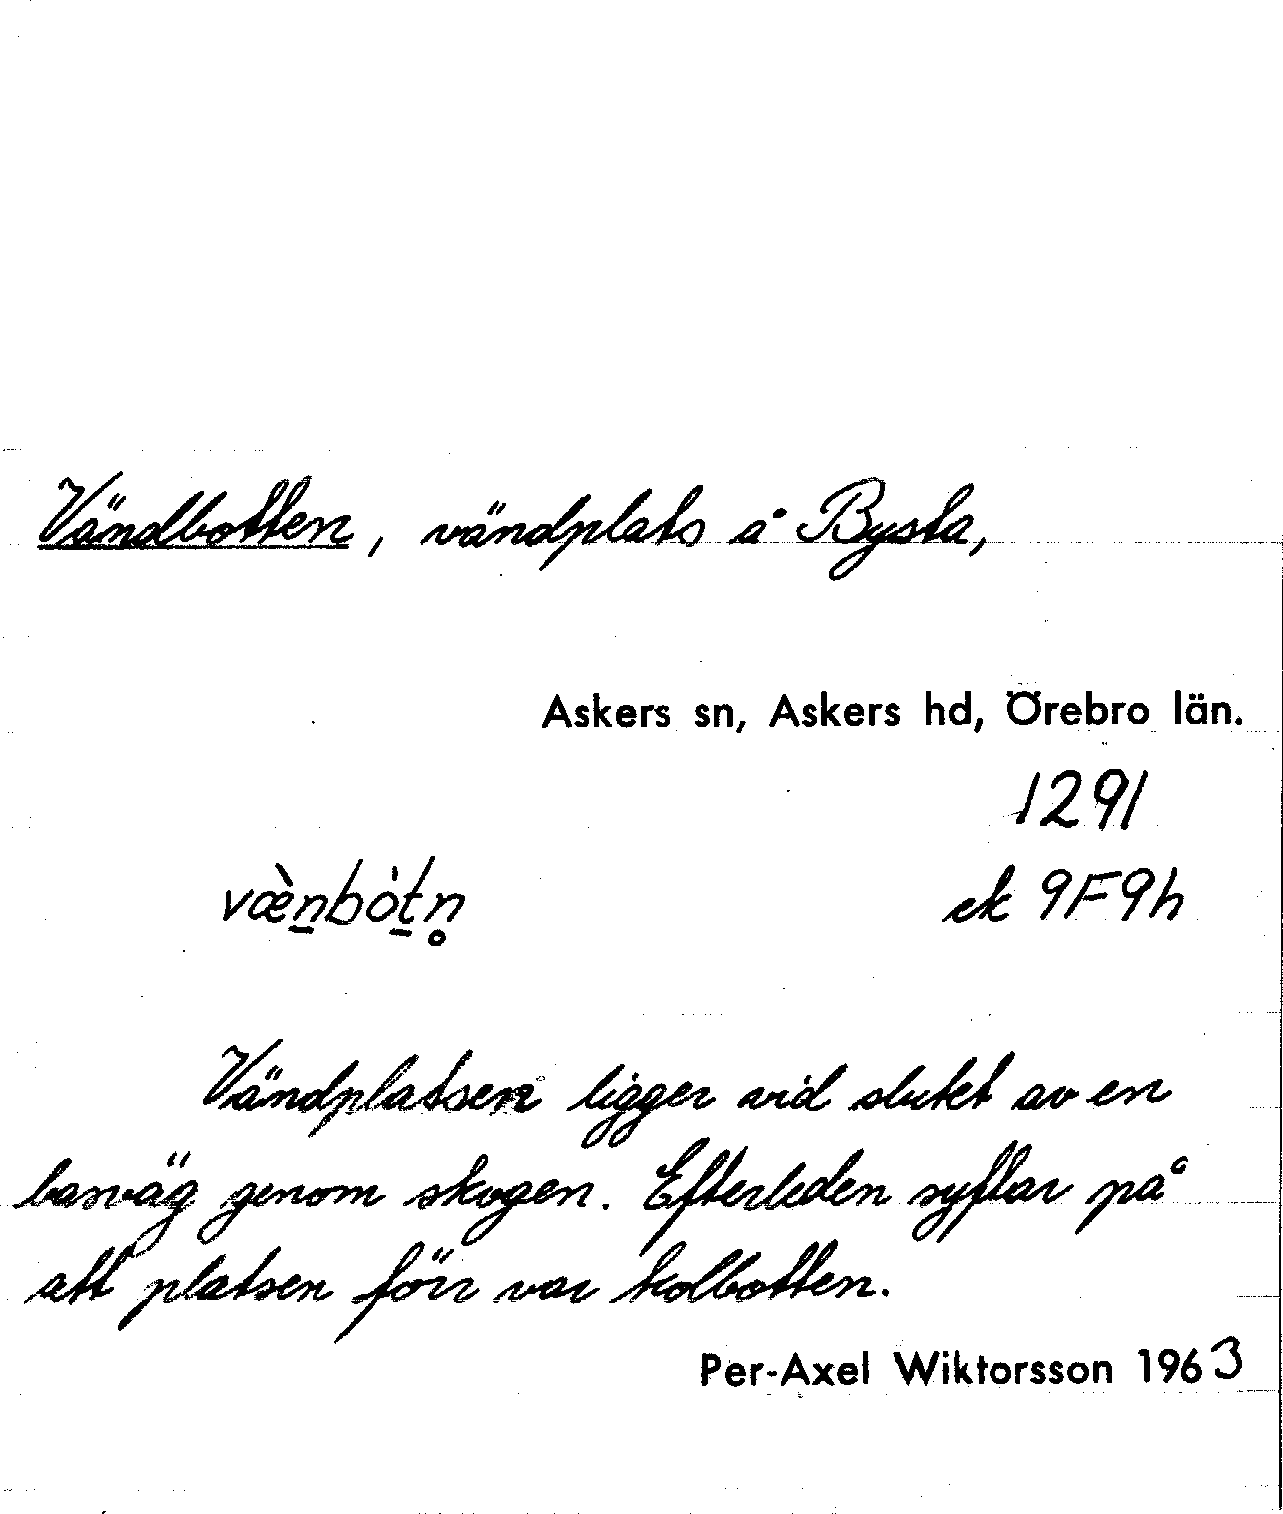 Vändbotten, vändplats å Bysta,
Askers sn, Askers hd, Örebro län.
1291
væ̀n̠bòt̠n̥ ek 9F9h
Vändplatsen ligger vid slutet av en
basväg genom skogen. Efterleden syftar på
att platsen förr var kolbotten.
Per-Axel Wiktorsson 1963